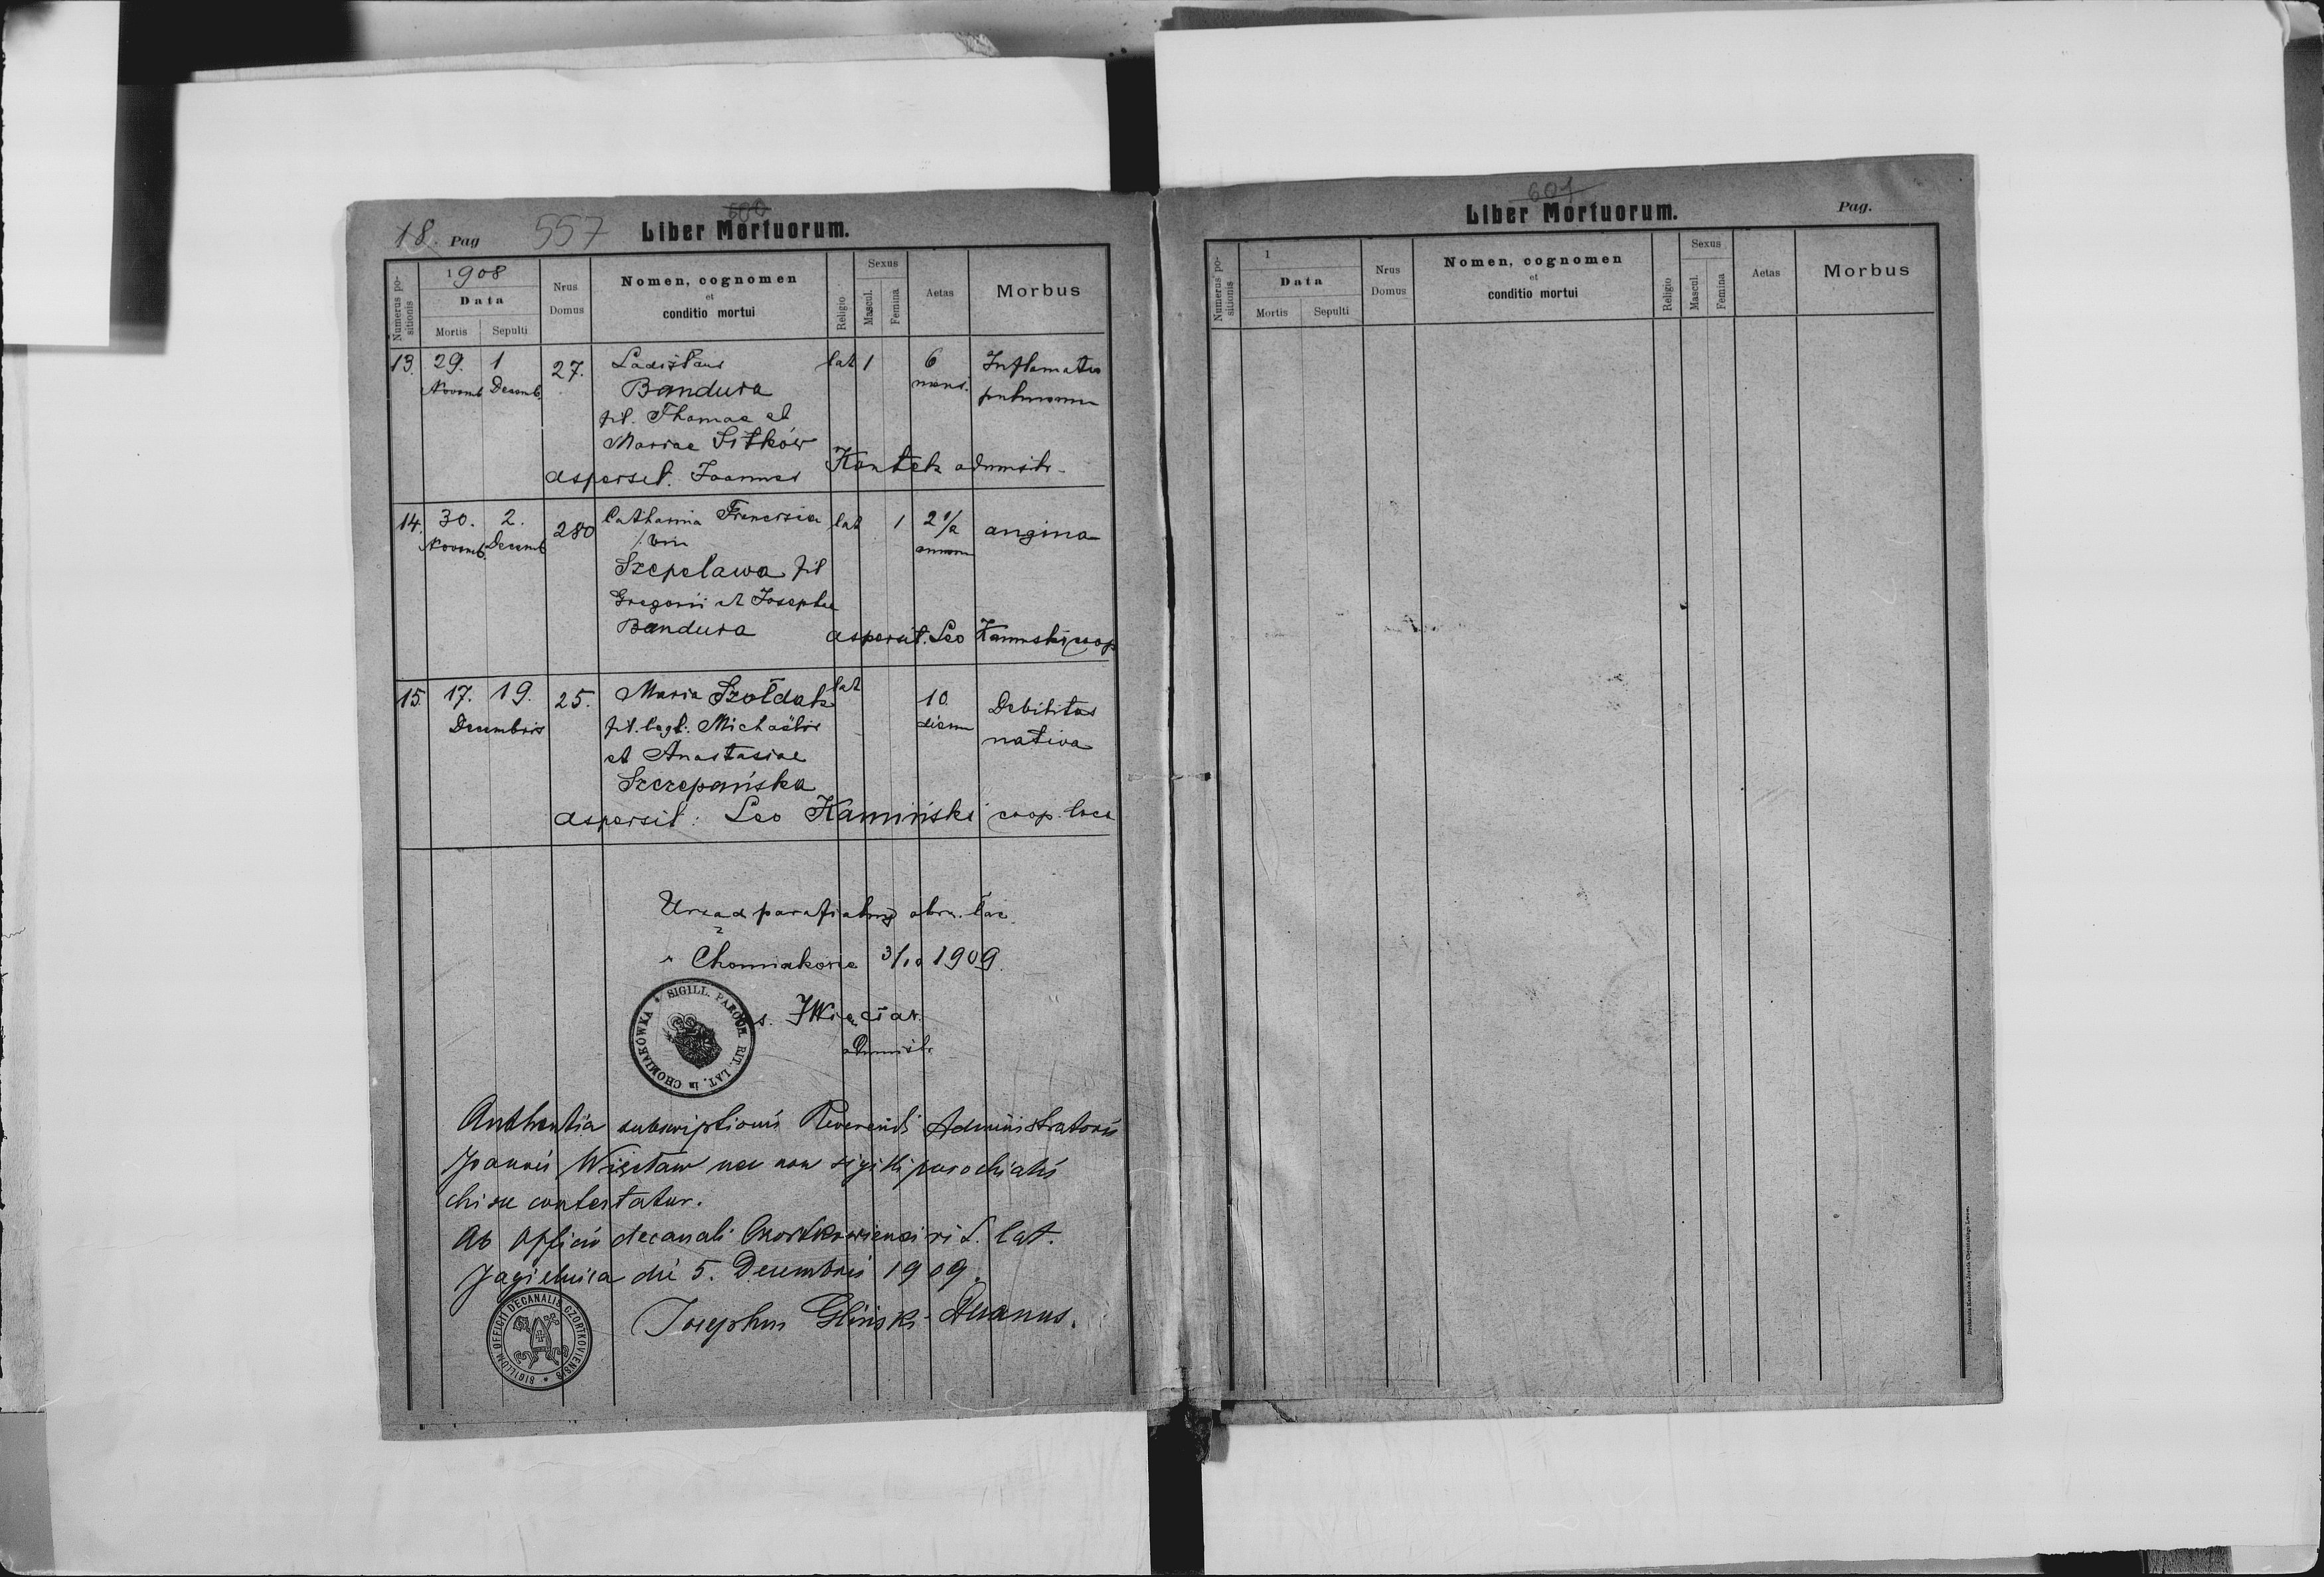 18. Pag 557 600
Liber Mortuorum.
Numerus positionis
1908
Data
Mortis Sepulti
Nrus Domus
Nomen, cognomen
et
conditio mortui
Religio
Sexus
Mascul. Femina
Aetas
Morbus
13. 29. 1 27. Ladislaus lat 1 6 Inflamatio
Novemb. Decemb. Bandura mens.
fil. Thomae et
Mariae Sitków
aspersit. Joannes Kontek administr.
14. 30. 2. 280 Catharina lat 1 2 1/2 angina
Novemb. Decemb.
Szepelawa fil
Gregorii et Josepha
Bandura
aspersit. Leo Kaminski coop
15. 17. 19. 25. Maria Szołdak lat 10 Debilitas
Decembris fil. legt. Michaëlis dierum nativa
et Anastasiae
Szczepańska
aspersit: Leo Kamiński coop. loci
Urząd parafialny obrz. łac.
Chomiakowce 3/10 1909.
SIGILL. PAROCH. RIT. LAT. in CHOMIAKÓWKA
administr.
Authentia subscriptionis Reverendi Administratoris
Joannis nec non sigilli parochialis
hisce contestatur.
Ab Officio decanali Czortkowiensi rit. lat.
Jagielnica die 5. Decembris 1909.
Josephus Gliński Decanus.
SIGILLUM OFFICII DECANALIS CZORTKOVIENSIS
601
Liber Mortuorum.
Pag.
Numerus positionis
1
Data
Mortis Sepulti
Nrus Domus
Nomen, cognomen
et
conditio mortui
Religio
Sexus
Mascul. Femina
Aetas
Morbus